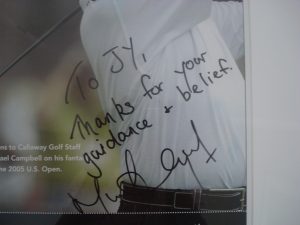 To JY,
Thanks for your
guidance & belief.
ns to Callaway Golf Staff
ael Campbell on his fanta
he 2005 U.S. Open.